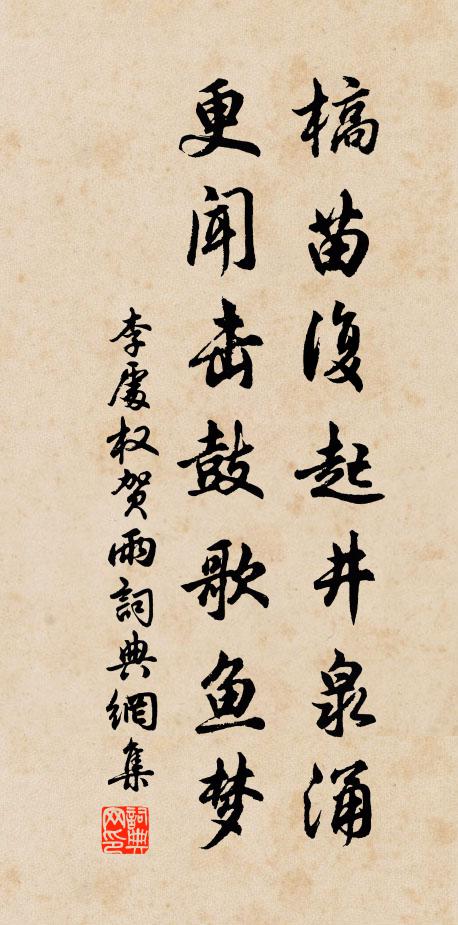 槁苗復起井泉涌
更闻击鼓歌鱼梦
李處权贺雨詞典網集
詞典网印